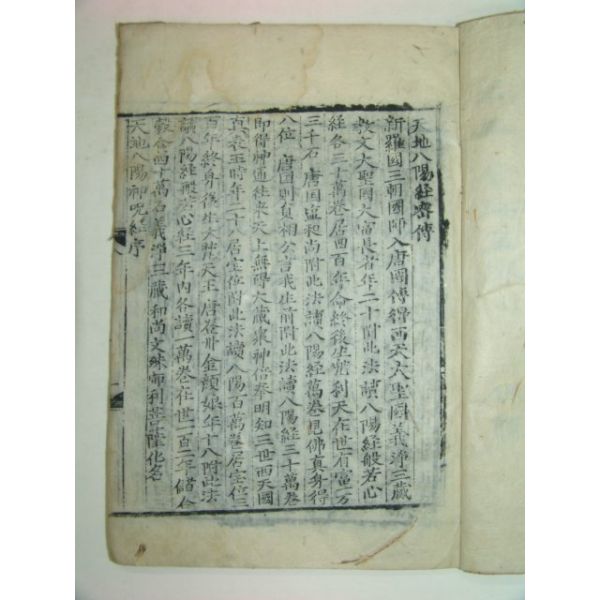 天地八陽經密傳
新羅國三朝國師入唐國傳得西天大聖國義淨三藏
教文大聖國大富長者年二十附此法讀八陽經般若心
經各三十萬卷居四百年命終後生忉利天在世有富万
三千石 唐國 和尚附此法讀八陽經萬卷見佛真身得
八位 唐國則負相公言我生前附此法讀八陽經三十萬卷
即得神通往來天上無碍大藏衆神倍奉明知三世西天國
真表王時年二十八居宝位附此法讀八陽百萬卷居宝位三
百年終身後生大梵天王 唐 州金顔娘年十八附此法
讀八陽經般若心經三年內各讀一萬卷在世一百二年儲人
穀合四十萬石義淨三藏和尚文殊師利菩薩化名
天地八陽神呪經序